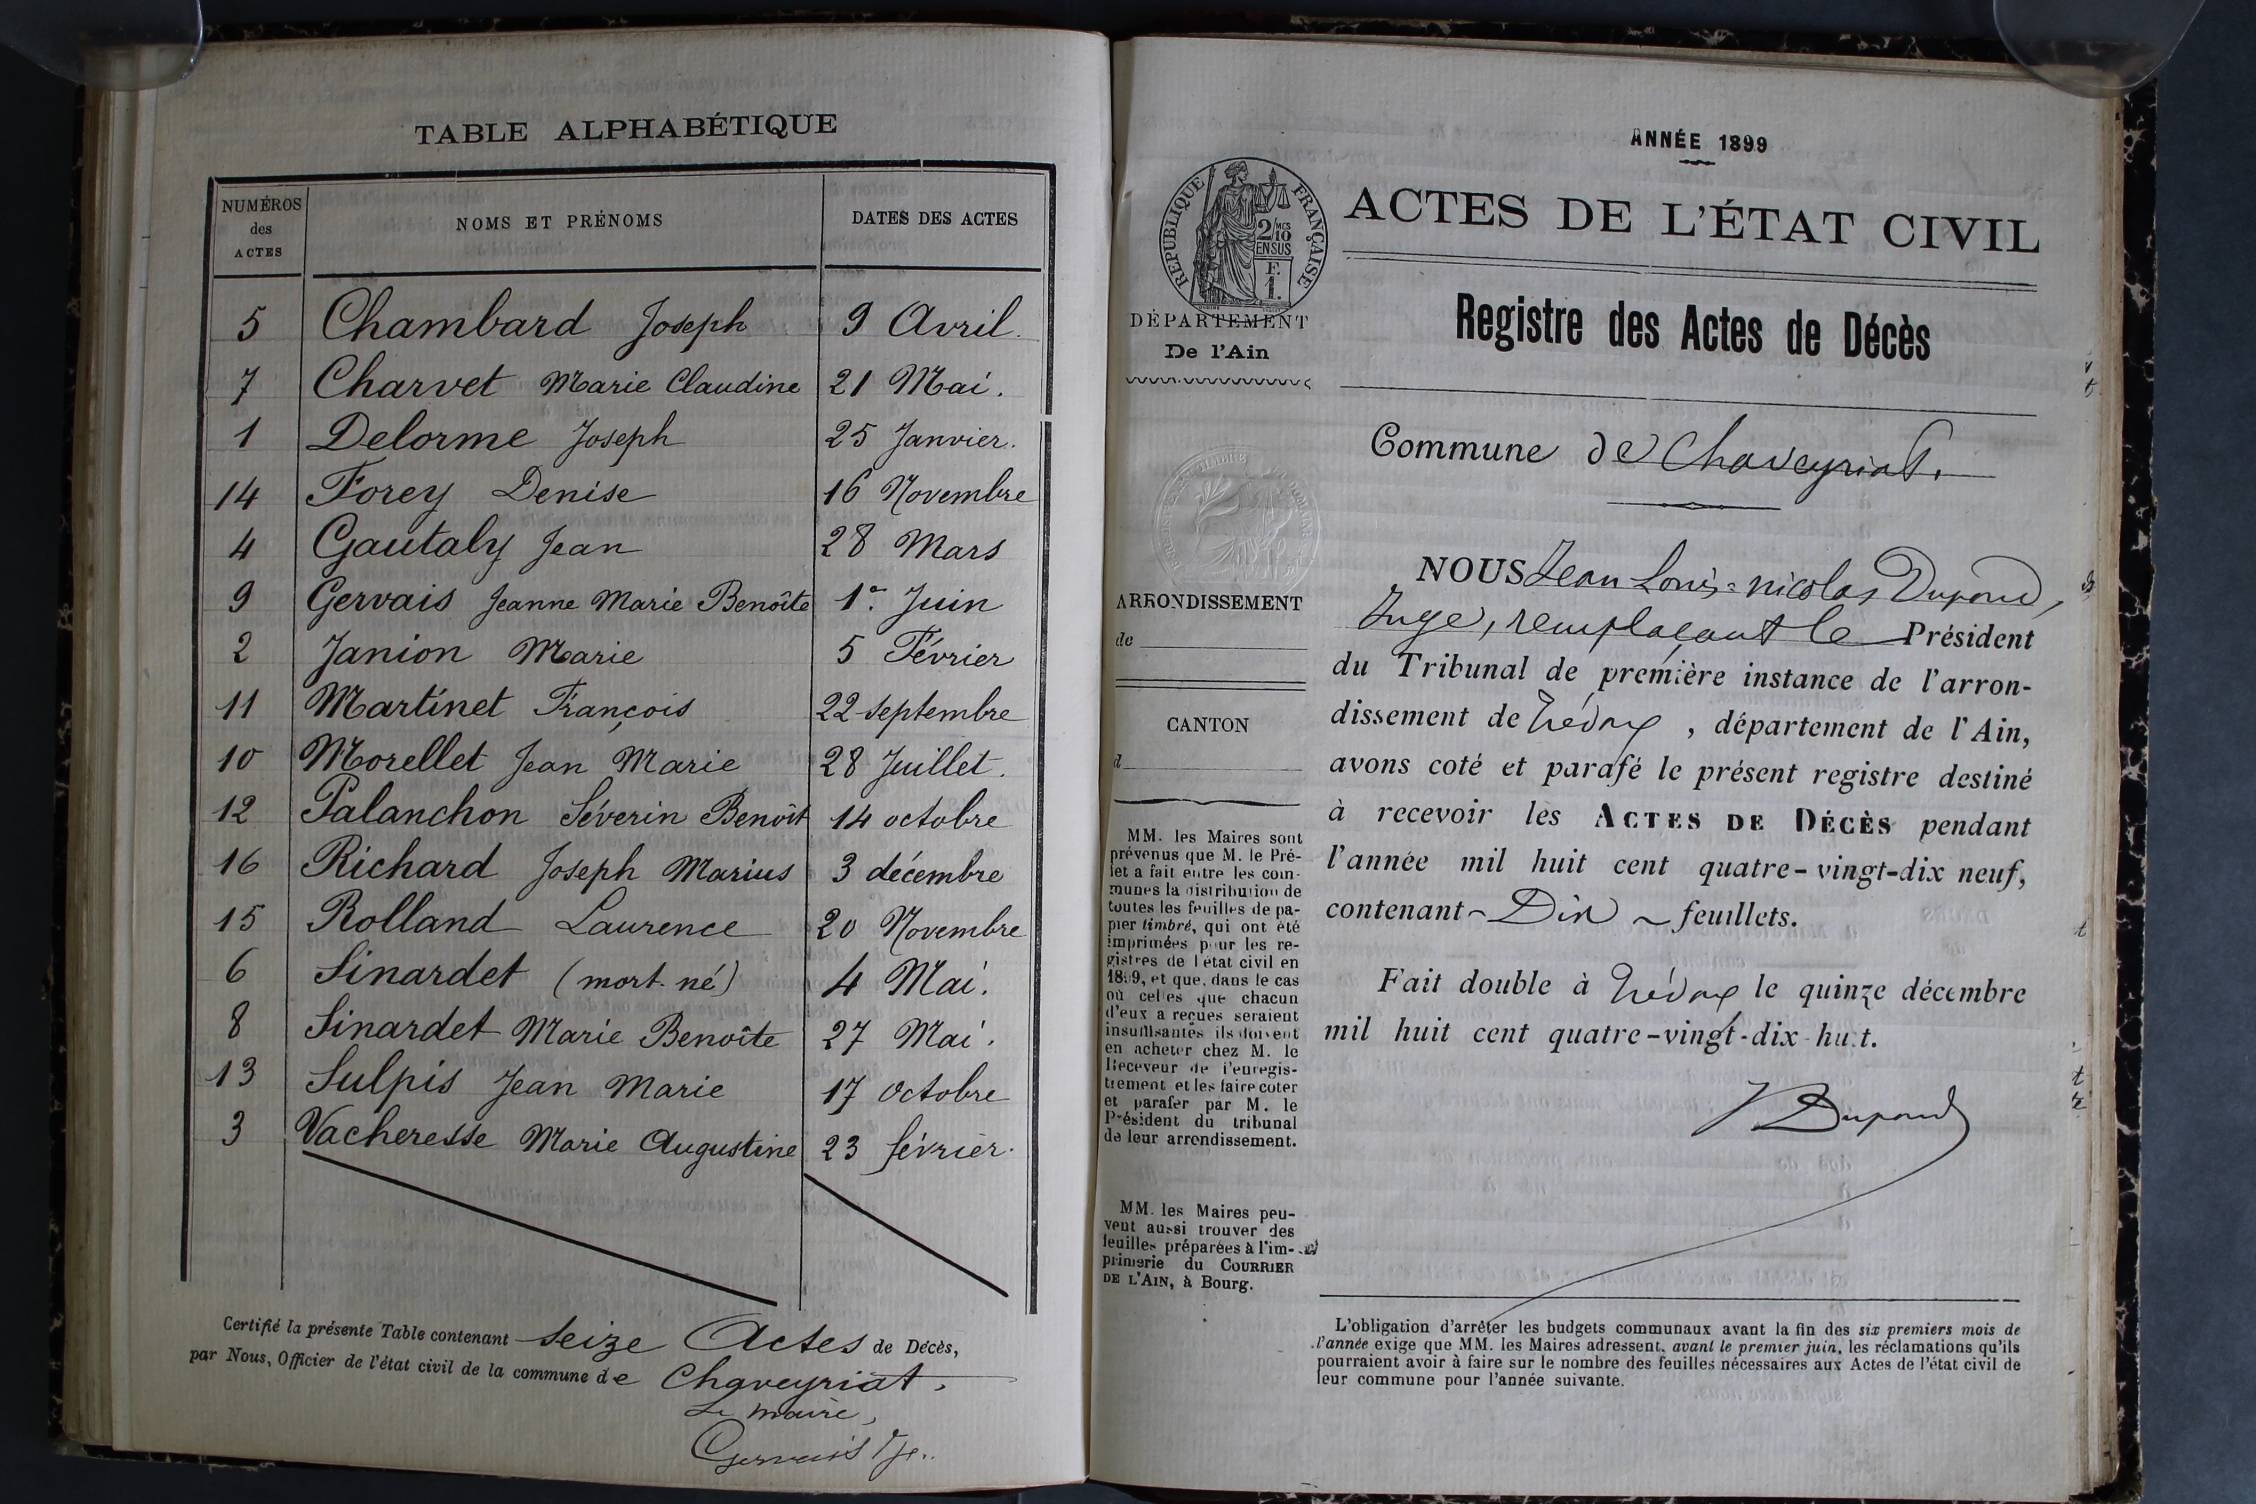 TABLE ALPHABÉTIQUE
NUMÉROS des ACTES NOMS ET PRÉNOMS DATES DES ACTES
5 Chambard Joseph 9 Avril.
7 Charvet Marie Claudine 21 Mai.
1 Delorme Joseph 25 Janvier.
14 Forey Denise 16 Novembre
4 Gautaly Jean 28 Mars
9 Gervais Jeanne Marie Benoîte 1er Juin
2 Janion Marie 5 Février
11 Martinet François 22 septembre
10 Morellet Jean Marie 28 Juillet.
12 Palanchon Séverin Benoît 14 octobre
16 Richard Joseph Marius 3 décembre
15 Rolland Laurence 20 Novembre
6 Sinardet (mort-né) 4 Mai.
8 Sinardet Marie Benoîte 27 Mai.
13 Sulpis Jean Marie 17 octobre
3 Vacheresse Marie Augustine 23 février.
Certifié la présente Table contenant seize Actes de Décès,
par Nous, Officier de l'état civil de la commune de Chaveyriat,
Le maire,
Gervais
ANNÉE 1899
RÉPUBLIQUE FRANÇAISE
2/10 MCS
EN SUS
F.
1.
ACTES DE L'ÉTAT CIVIL
DÉPARTEMENT
De l'Ain
Registre des Actes de Décès
Commune de Chaveyriat.
ARRONDISSEMENT
de
CANTON
d
MM. les Maires sont
prévenus que M. le Pré-
fet a fait entre les com-
munes la distribution de
toutes les feuilles de pa-
pier timbré, qui ont été
imprimées pour les re-
gistres de l'état civil en
1899, et que, dans le cas
où celles que chacun
d'eux a reçues seraient
insuffisantes ils doivent
en acheter chez M. le
Receveur de l'enregis-
trement et les faire coter
et parafer par M. le
Président du tribunal
de leur arrondissement.
MM. les Maires peu-
vent aussi trouver des
feuilles préparées à l'im-
primerie du COURRIER
DE L'AIN, à Bourg.
NOUS Jean Louis-nicolas Dupond,
Juge, remplaçant le Président
du Tribunal de première instance de l'arron-
dissement de Trévoux, département de l'Ain,
avons coté et parafé le présent registre destiné
à recevoir les ACTES DE DÉCÈS pendant
l'année mil huit cent quatre-vingt-dix neuf,
contenant Dix feuillets.
Fait double à Trévoux le quinze décembre
mil huit cent quatre-vingt-dix-huit.
Dupond
L'obligation d'arrêter les budgets communaux avant la fin des six premiers mois de
l'année exige que MM. les Maires adressent, avant le premier juin, les réclamations qu'ils
pourraient avoir à faire sur le nombre des feuilles nécessaires aux Actes de l'état civil de
leur commune pour l'année suivante.